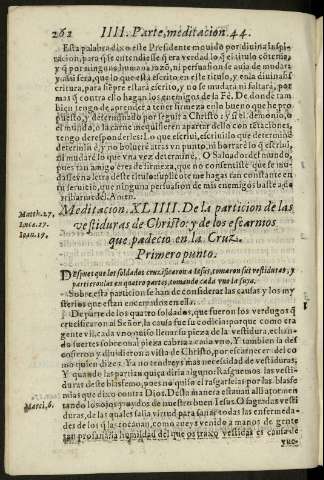 262 IIII. Parte, meditacion. 44.
Esta palabra dixo este Presidente mouido por diuina inspi-
racion, para que se entendiesse que era verdad lo que el titulo contenia,
y que por ningun humana razō, ni persuasion se auia de mudara
ya assi sera, que lo que està escrito en este titulo, y en la diuina es-
critura, para siēpre estarà escrito, y no se mudara ni faltara, por
mas que contra ello hagan los enemigos de la Fè. De donde tam-
bien tengo de aprender a tener firmeza en lo bueno que he pro-
puesto, y determinado por seguir a Christo: y si el demonio, o
el mundo, o la carne me quisieren apartar dello con tentaciones,
tengo de responderles: Lo que escriui, escriui: lo que determinè
determinè, y no boluerè atras vn punto, ni borrarè lo que escriui,
ni mudarè lo que vna vez determinè. O Saluador del mundo,
pues tan amigo eres de firmeza, que no consentiste que se mu-
dasse vna letra deste titulo: suplicote me hagas tan constante en
tu seruicio, que ninguna persuasion de mis enemigos baste a de-
ribarme del. Amen.
Meditacion. XLIIII. De la particion de las
vestiduras de Christo: y de los escarnios
que padecio en la Cruz.
Matth. 27.
Luc. 23.
Ioan. 19.
Primero punto.
Despues que los soldados crucificaron a Iesus, tomaron sus vestiduras, y
partieronlas en quatro partes, tomando cada vno la suya.
Sobre esta particion se han de considerar las causas y los my-
sterios que estan encerrados en ella.
De parte de los quatro soldados, que fueron los verdugos que
crucificaron al Señor, la causa fue su codicia: porque como era
gente vil, cada vno quiso lleuar su pieça de la vestidura, echan-
do suertes sobre qual pieça cabria a cada vno. Y tambien la de
cosieron y diuidieron a vista de Christo, por escarnecer del co-
mo quien dize: Ya no tendreys mas necessidad de vestiduras.
Y quando las partian quiça diria alguno: Rasguemos las vesti-
duras deste blasfemo, pues no quiso el rasgarselas por las blasfe-
mias que dixo contra Dios. Desta manera estauan alli atormen-
tando los ojos y oydos de nuestro buen Iesus. O sagradas vesti-
Marci, 6.
duras, de las quales salia virtud para sanar todas las enfermeda-
des de los que las tocauan, como aueys venido a manos de gente
tan profana! la humildad del que os traxo vestidas es causa de
que-